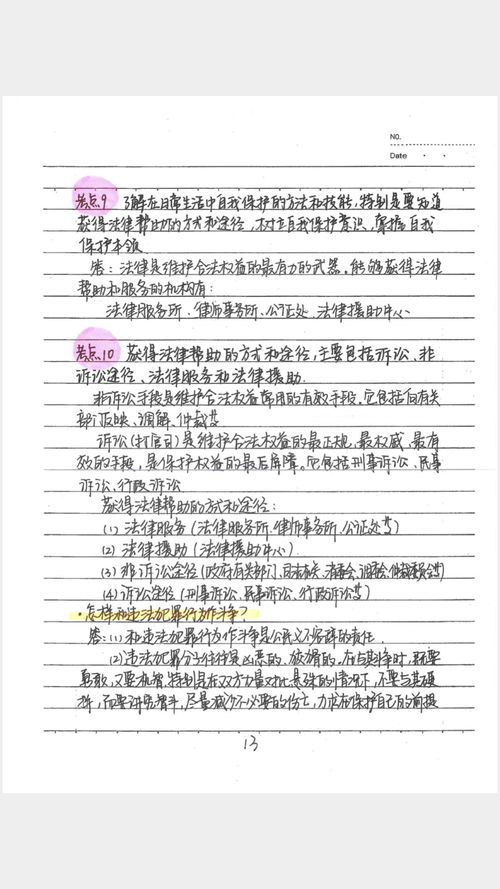 NO.
Date
考点9 了解在日常生活中自我保护的方法和技能,特别是要知道
获得法律帮助的方式和途径,树立自我保护意识,掌握自我
保护本领
答:法律是维护合法权益的最有力的武器,能够获得法律
帮助和服务的机构有:
法律服务所、律师事务所、公证处、法律援助中心
考点10 获得法律帮助的方式和途径,主要包括诉讼、非
诉讼途径、法律服务和法律援助.
非诉讼手段是维护合法权益常用的有效手段.它包括向有关
部门反映、调解、仲裁等
诉讼(打官司)是维护合法权益的最正规、最权威、最有
效的手段,是保护权益的最后屏障。它包括刑事诉讼、民事
诉讼、行政诉讼
获得法律帮助的方式和途径:
(1)法律服务(法律服务所、律师事务所、公证处等)
(2)法律援助(法律援助中心)
(3)非诉讼途径(政府有关部门、司法机关、
(4)诉讼途径(刑事诉讼、民事诉讼、行政诉讼等)
·怎样和违法犯罪行为作斗争?
答:(1)和违法犯罪行为作斗争是公民义不容辞的责任.
(2)违法犯罪分子往往是凶恶的、狡猾的,在与其斗争时,既要
勇敢,又要机智,特别是在双方力量对比悬殊的情况下,不要与其硬
拼,而要讲究智斗,尽量减少不必要的伤亡,力求在保护自己的前提
13